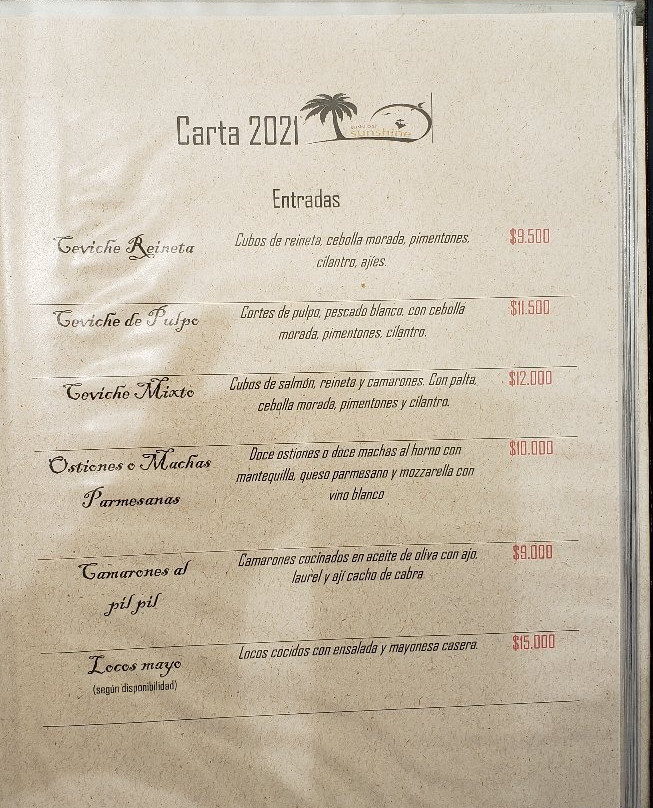 Carta 2021
sunshine
Entradas
Ceviche Reineta
Cubos de reineta, cebolla morada, pimentones,
cilantro, ajíes.
$9.500
Ceviche de Pulpo
Cortes de pulpo, pescado blanco, con cebolla
morada, pimentones, cilantro.
$11.500
Ceviche Mixto
Cubos de salmón, reineta y camarones. Con palta,
cebolla morada, pimentones y cilantro.
$12.000
Ostiones o Machas
Parmesanas
Doce ostiones o doce machas al horno con
mantequilla, queso parmesano y mozzarella con
vino blanco
$10.000
Camarones al
pil pil
Camarones cocinados en aceite de oliva con ajo,
laurel y ají cacho de cabra
$9.000
Locos mayo
(según disponibilidad)
Locos cocidos con ensalada y mayonesa casera.
$15.000